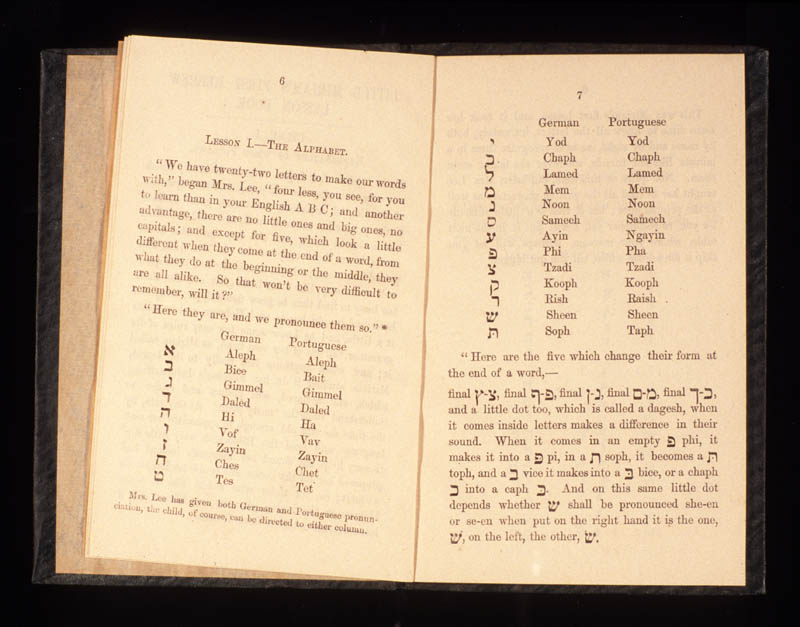 6
LESSON I.—THE ALPHABET.
"We have twenty-two letters to make our words
with," began Mrs. Lee, "four less, you see, for you
to learn than in your English A B C; and another
advantage, there are no little ones and big ones, no
capitals; and except for five, which look a little
different when they come at the end of a word, from
what they do at the beginning or the middle, they
are all alike. So that won't be very difficult to
remember, will it?"
"Here they are, and we pronounce them so."*
German Portuguese
א Aleph Aleph
ב Bice Bait
ג Gimmel Gimmel
ד Daled Daled
ה Hi Ha
ו Vof Vav
ז Zayin Zayin
ח Ches Chet
ט Tes Tet
Mrs. Lee has given both German and Portuguese pronun-
ciation, the child, of course, can be directed to either column.
7
German Portuguese
י Yod Yod
כ Chaph Chaph
ל Lamed Lamed
מ Mem Mem
נ Noon Noon
ס Samech Samech
ע Ayin Ngayin
פ Phi Pha
צ Tzadi Tzadi
ק Kooph Kooph
ר Rish Raish
ש Sheen Sheen
ת Soph Taph
"Here are the five which change their form at
the end of a word,—
final צ-ץ, final פ-ף, final נ-ן, final מ-ם, final כ-ך,
and a little dot too, which is called a dagesh, when
it comes inside letters makes a difference in their
sound. When it comes in an empty פ phi, it
makes it into a פּ pi, in a ת soph, it becomes a תּ
toph, and a ב vice it makes into a בּ bice, or a chaph
כ into a caph כּ. And on this same little dot
depends whether ש shall be pronounced she-en
or se-en when put on the right hand it is the one,
שׁ, on the left, the other, שׂ.